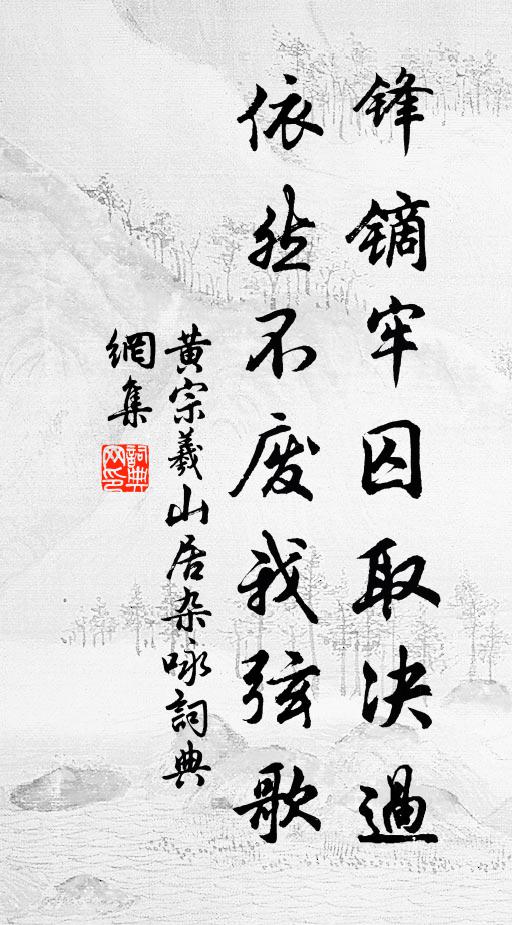 锋镝牢囚取决過
依然不废我弦歌
黄宗羲山居杂咏詞典
網集
詞典
网印